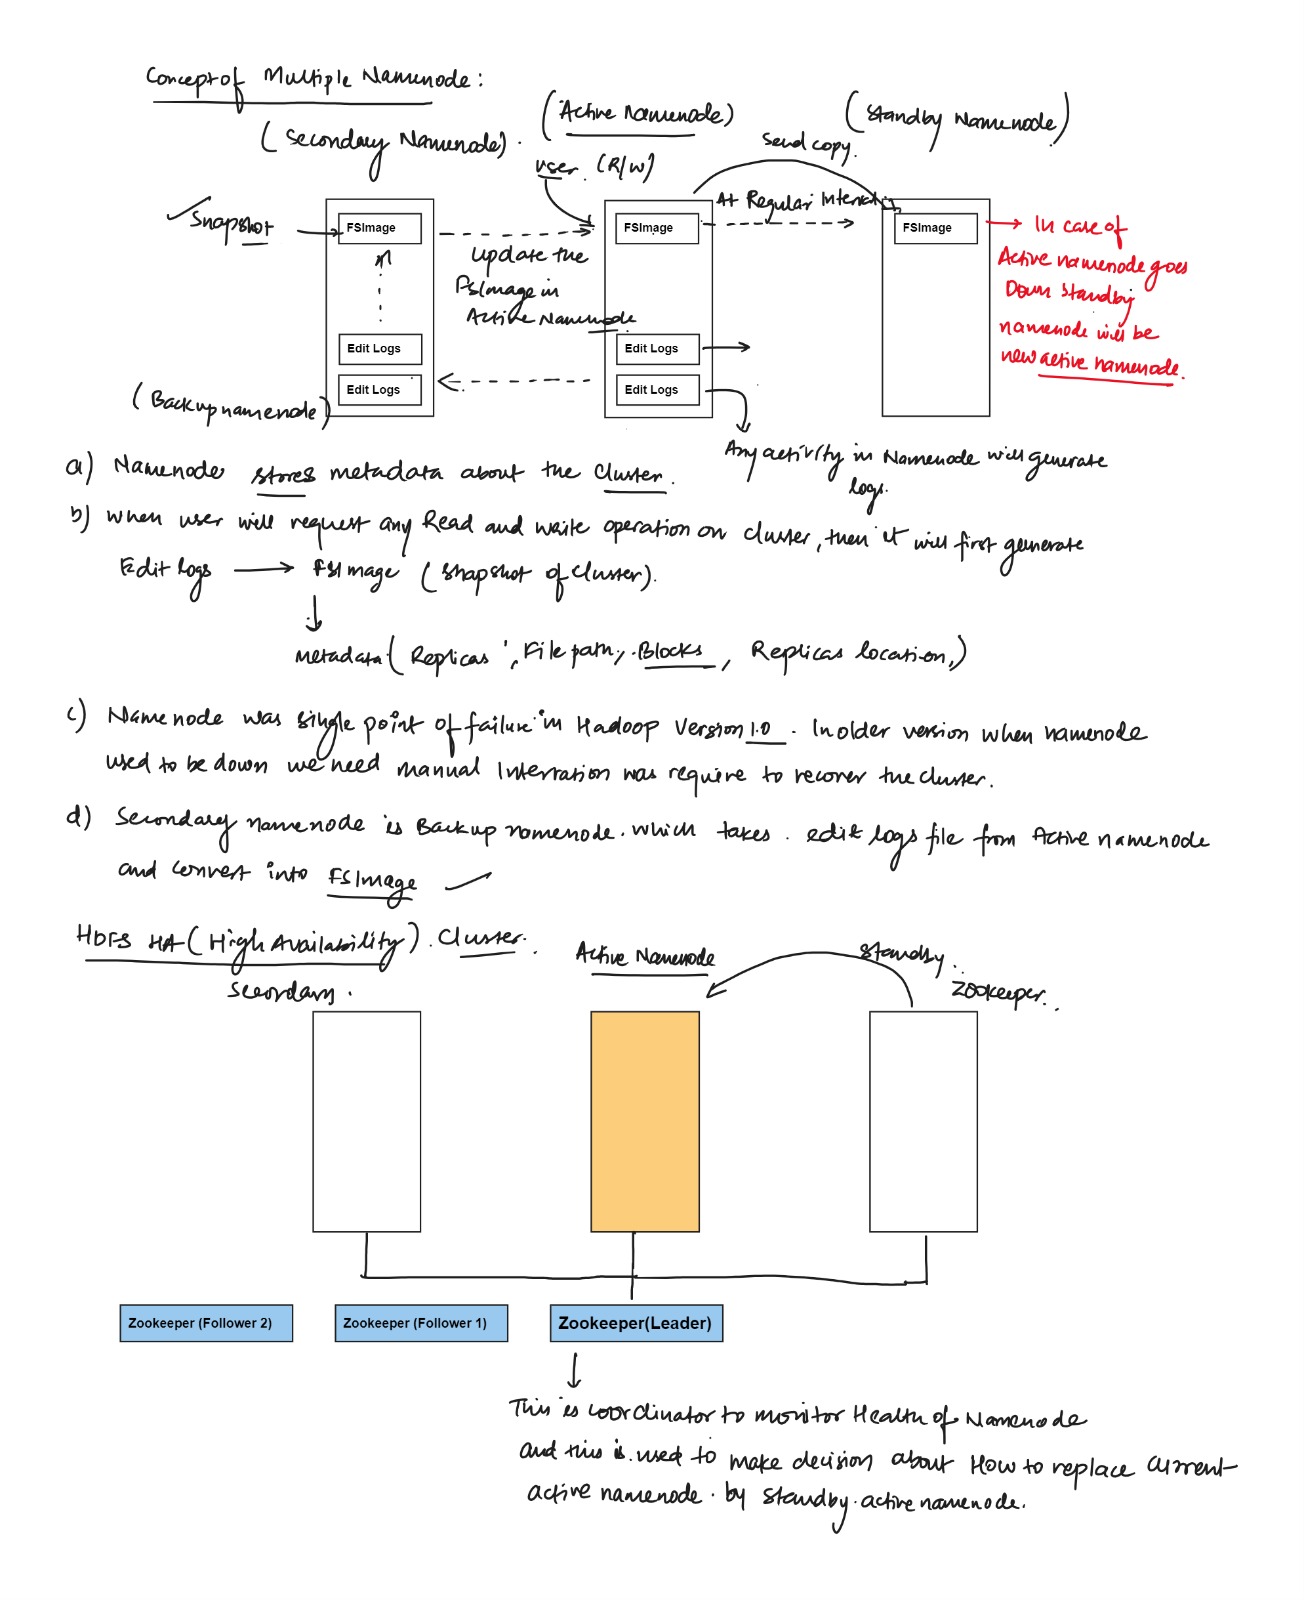 Concept of Multiple Namenode:
(Secondary Namenode).
(Active Namenode)
(Standby Namenode)
user (R/W)
Send copy.
Snapshot
FSImage
FSImage
At Regular Interval
FSImage
In case of
Active namenode goes
Down Standby
namenode will be
new active namenode.
Update the
FSImage in
Active Namenode
Edit Logs
Edit Logs
Edit Logs
Edit Logs
(Backup namenode)
Any activity in Namenode will generate
logs.
a) Namenode stores metadata about the Cluster.
b) When user will request any Read and write operation on cluster, then it will first generate
Edit logs → FSImage (Snapshot of Cluster).
Metadata (Replicas, File path, Blocks, Replicas location,)
c) Namenode was single point of failure in Hadoop Version 1.0. In older version when namenode
used to be down we need manual Interration was require to recover the cluster.
d) Secondary namenode is Backup namenode. which takes. edit logs file from Active namenode
and convert into FSImage
HDFS HA (High Availability). Cluster.
Secordary.
Active Namenode
Standby.
Zookeeper.
Zookeeper (Follower 2)
Zookeeper (Follower 1)
Zookeeper(Leader)
This is coordinator to monitor Health of Namenode
and this is used to make decision about How to replace current
active namenode. by Standby. active namenode.